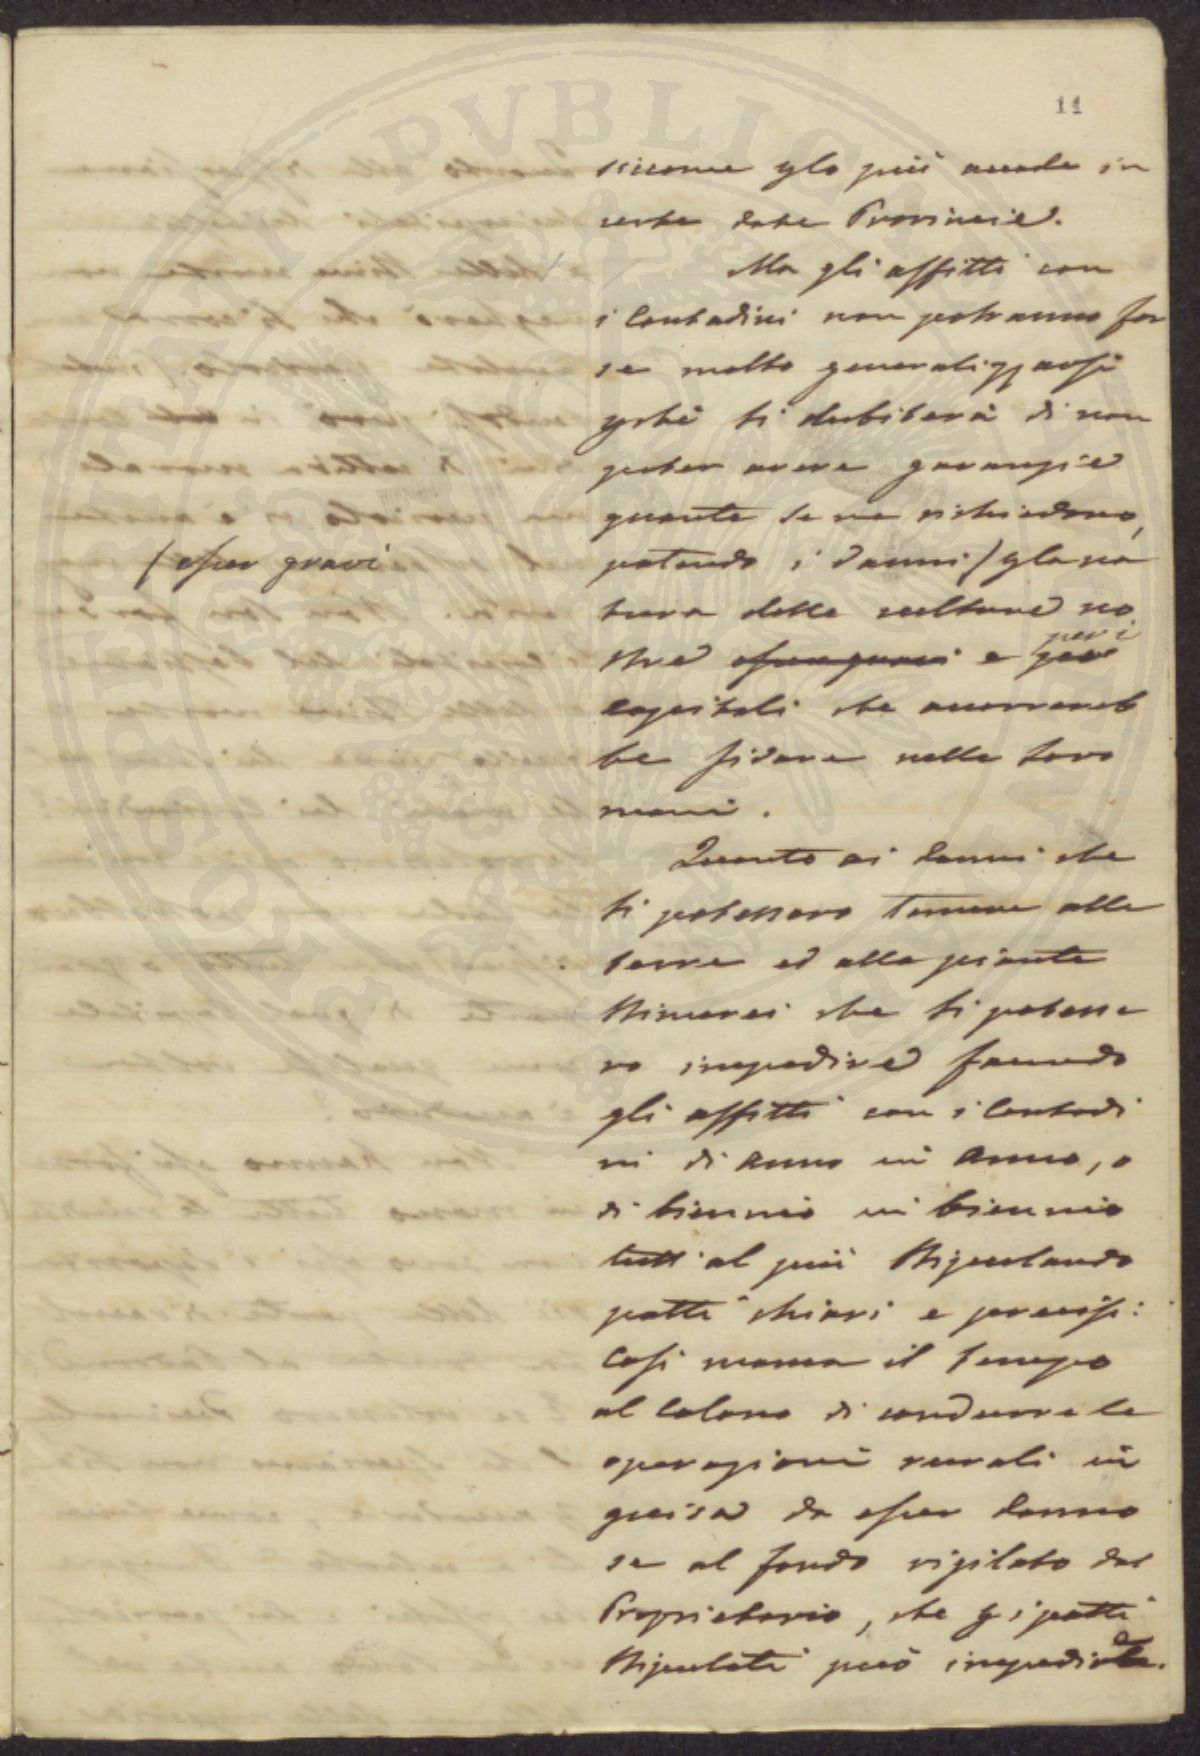 11
siccome p lo più accade in
certe date Provincie.
Ma gli affitti con
i Contadini non potranno for
se molto generalizzarsi
pchè si dubiterà di non
poter avere garanzie
quante se ne richiedono,
potendo i danni / p la na
(esser gravi
tura delle colture no
stre esser gravi e per i
capitali che occorrereb
be fidare nelle loro
mani.
Quanto ai danni che
si potessero temere alle
terre ed alle piante
stimerei che si potesse
ro impedire facendo
gli affitti con i Contadi
ni di anno in anno, o
di biennio in biennio
tutt'al più stipulando
patti chiari e precisi:
Così manca il tempo
al Colono di condurre le
operazioni rurali in
guisa da esser danno
se al fondo vigilato dal
Proprietario, che p i patti
stipulati può impedirle.